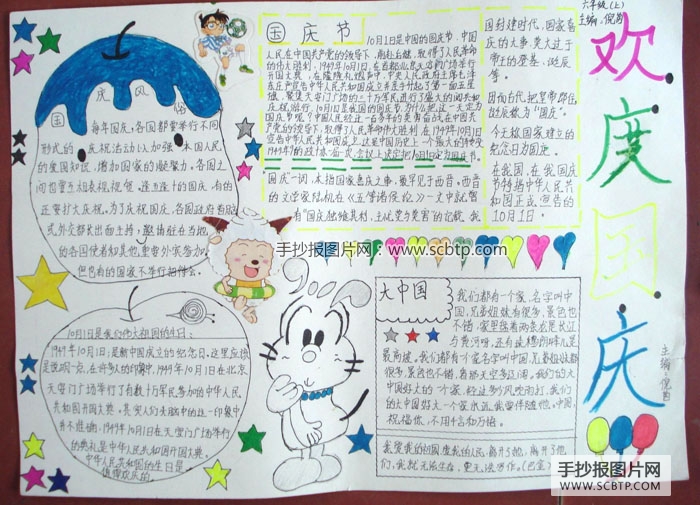 六年级(上)
主编:倪岩
欢
度
国
庆
主编:倪岩
国庆节
10月1日是中国的国庆节,中国
人民在中国共产党的领导下,
开国大典,在隆隆礼炮声中,中央人民政府主席毛泽
东庄严宣告中华人民共和国成立并亲手升起了第一面五星
国封建时代,国家喜
庆的大事,莫大过于
帝王的登基、诞辰
等。
因而古代把皇帝即位、
诞辰称为“国庆”。
今天称国家建立的
纪念日为国庆。
在我国,在我国庆
节特指中华人民共
和国正式宣告的
10月1日。
国庆一词,本指国家喜庆之事,最早见于西晋。西晋
的文学家陆机在《五等诸侯论》一文中就曾
有“国庆独飨其利,主忧莫与其害”的记载、我
国庆风俗
每年国庆,各国都要举行不同
形式的庆祝活动,以加强本国人民
的爱国意识,增加国家的凝聚力。各国之
间也要互相表示祝贺、逢五逢十的国庆,有的
还要扩大庆祝。为了庆祝国庆,各国政府
式,由外交部长出面主持,邀请驻在当地
的各国使者和其他重要外宾参加。
但也有的国家不举行招待会。
手抄报图片网:www.scbtp.com
10月1日是我们伟大祖国的生日:
1949年10月1日,是新中国成立的纪念日。这里应该
是说明一点,在许多人的印象中,1949年10月1日在北京
天安门广场举行了有数十万军民参加的中华人民
共和国开国大典。其实,人们头脑中的这一印象
并不准确。1949年10月1日在天安门广场举行
的典礼是中华人民共和国开国大典。
中华人民共和国的生日是
大中国
我们都有一个家,名字叫中
国,兄弟姐妹都很多,景色也
不错,家里盘着两条龙是长江
与黄河呀,还有珠穆朗玛峰儿是
最高坡。我们都有一个家名字叫中国,兄弟姐妹都
很多,景色也不错,看那天空多辽阔,我们的大
中国好大的一个家,经过多少风吹和雨打,我们
的大中国好大一个家,永远我要伴随他。中国
祝福你,不用千言和万语。
我爱我的祖国,爱我的人民,离开了她,离开了他
们,我就无法生存,更无法写作。(巴金)
手抄报图片网
WWW.SCBTP.COM